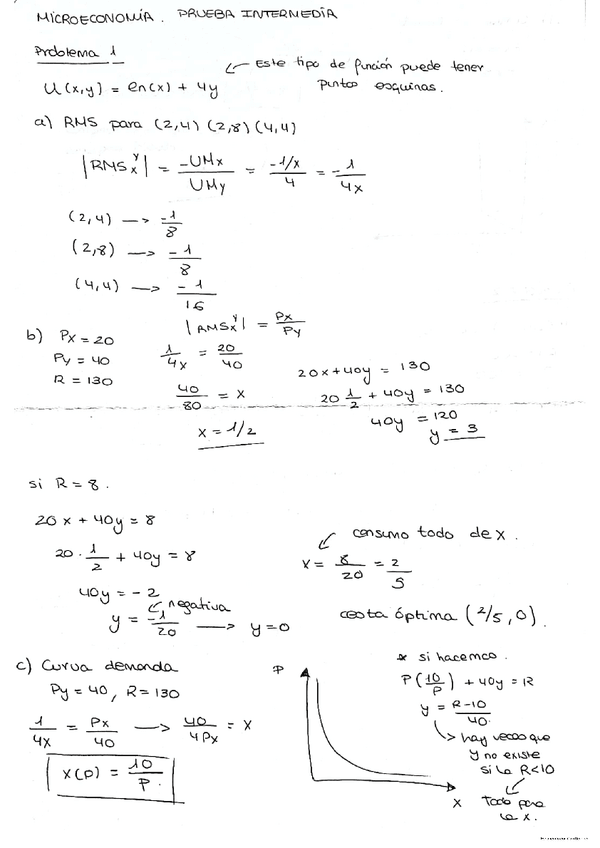 MICROECONOMÍA. PRUEBA INTERMEDIA
Problema 1
U(x,y) = ln(x) + 4y
Este tipo de función puede tener
puntos esquinas.
a) RMS para (2,4) (2,8) (4,4)
|RMS_x^y| = -UMx/UMy = (-1/x)/4 = -1/4x
(2,4) → -1/8
(2,8) → -1/8
(4,4) → -1/16
|RMS_x^y| = Px/Py
b) Px = 20
Py = 40
R = 130
1/4x = 20/40
40/80 = x
x = 1/2
20x + 40y = 130
20 1/2 + 40y = 130
40y = 120
y = 3
si R = 8.
20x + 40y = 8
20 · 1/2 + 40y = 8
40y = -2
negativa
y = -1/20 → y = 0
consumo todo de x.
x = 8/20 = 2/5
cesta óptima (2/5, 0).
c) Curva demanda
Py = 40, R = 130
1/4x = Px/40 → 40/4Px = x
x(p) = 10/P.
P
x
* si hacemos.
P(10/P) + 40y = R
y = R-10/40.
hay veces que
y no existe
si la R<10
Todo para
la x.